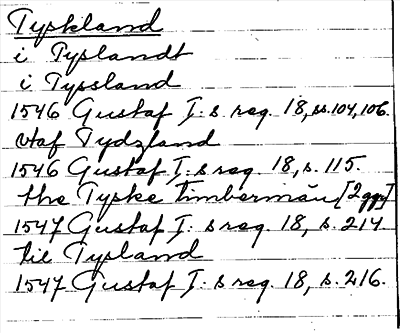 Tyskland
i Tyslandt
i Tyssland
1546 Gustaf I:s reg. 18, ss. 104, 106.
vtaf Tydzland
1546 Gustaf I:s reg. 18, s. 115.
the Tyske timbermän [2 ggr]
1547 Gustaf I:s reg. 18, s. 214.
till Tysland
1547 Gustaf I:s reg. 18, s. 216.